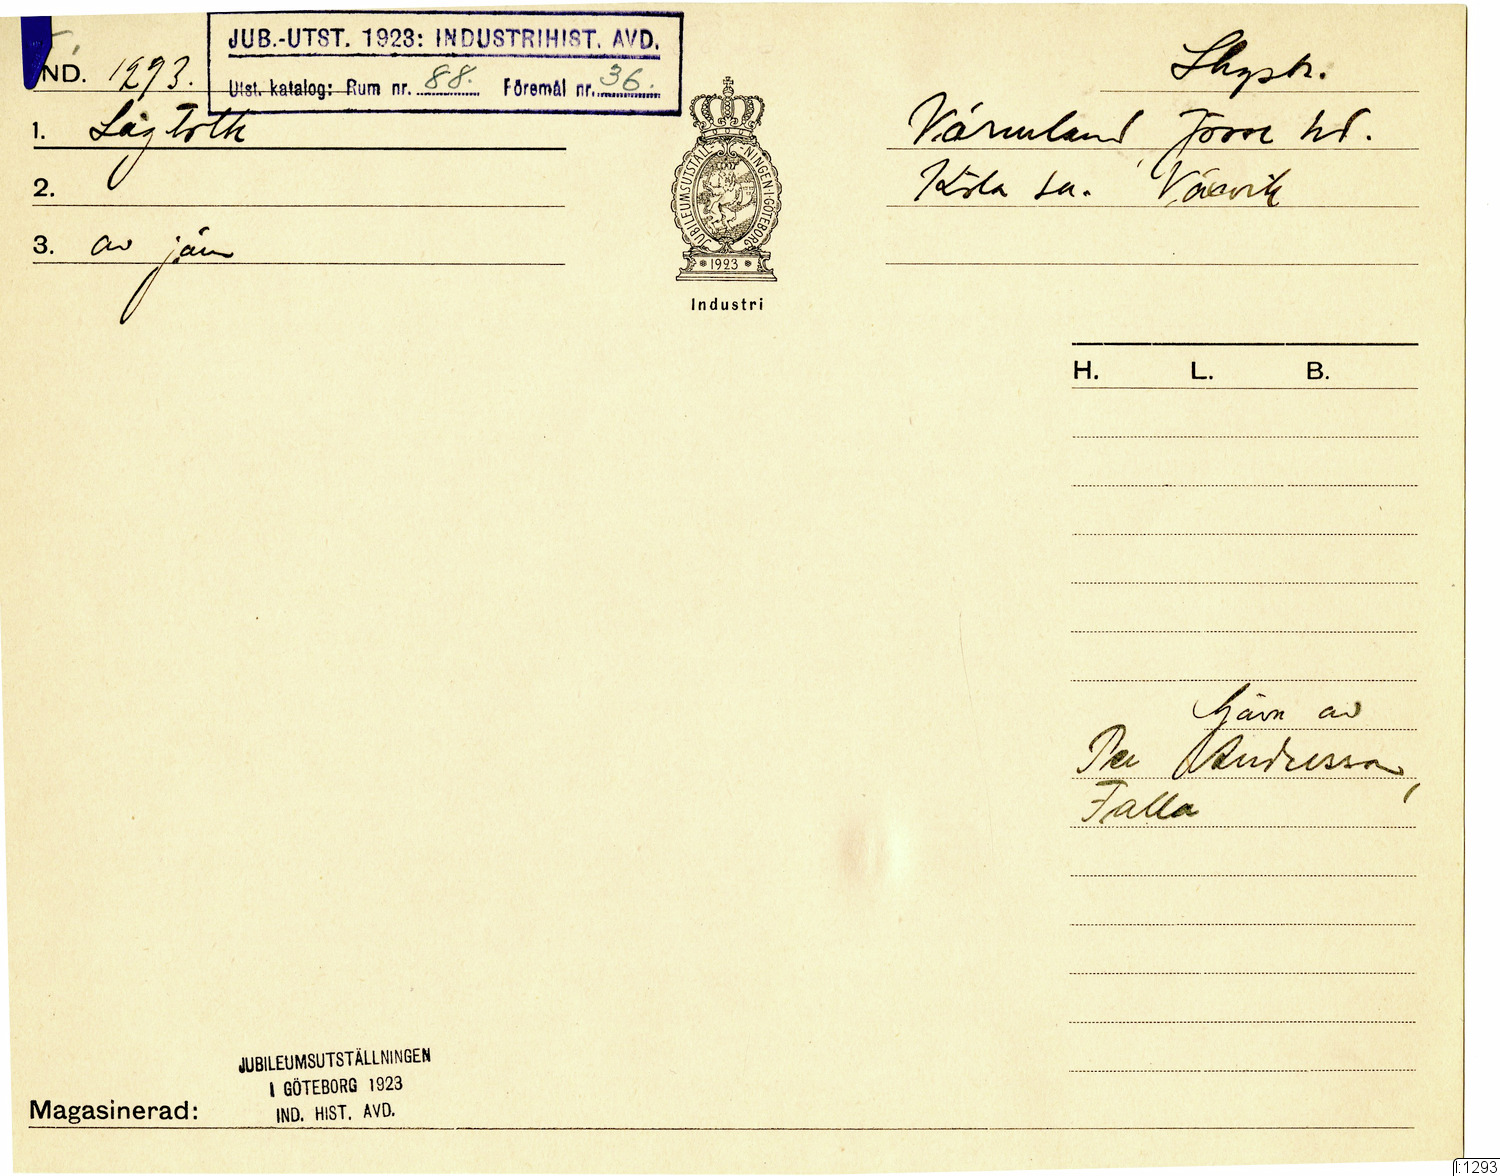 JUB.-UTST. 1923: INDUSTRIHIST. AVD.
Utst. katalog: Rum nr. 88. Föremål nr. 36.
IND. 1293.
1. Lås
2.
3. av järn
JUBILEUMSUTSTÄLL-NINGEN·I·GÖTEBORG
1923
Industri
Värmland, hd.
Köla sn.
H. L. B.
Gåva av
Per Andersson,
Falla
JUBILEUMSUTSTÄLLNINGEN
I GÖTEBORG 1923
IND. HIST. AVD.
Magasinerad:
I:1293